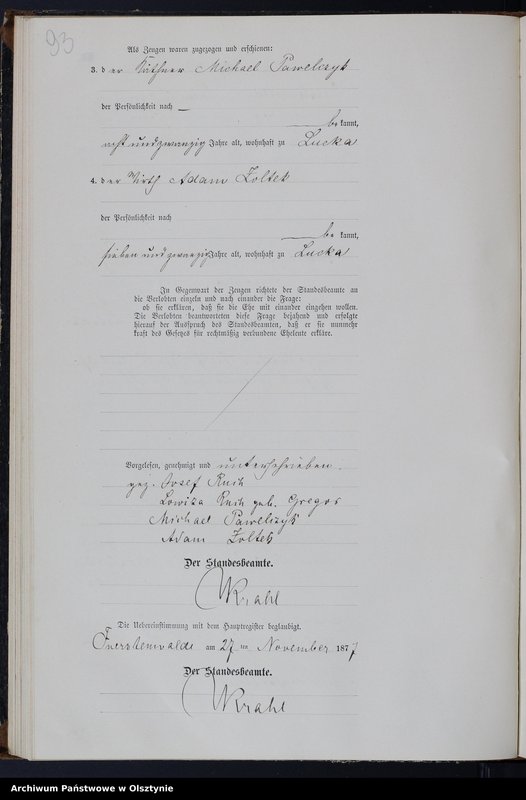 93
Als Zeugen waren zugezogen und erschienen:
3. der Käthner Michael Pawelczyk
der Persönlichkeit nach —
bekannt,
acht und zwanzig Jahre alt, wohnhaft zu Lucka
4. der Wirth Adam Zoltek
der Persönlichkeit nach
bekannt,
sieben und zwanzig Jahre alt, wohnhaft zu Lucka
In Gegenwart der Zeugen richtete der Standesbeamte an
die Verlobten einzeln und nach einander die Frage:
ob sie erklären, daß sie die Ehe mit einander eingehen wollen.
Die Verlobten beantworteten diese Frage bejahend und erfolgte
hierauf der Ausspruch des Standesbeamten, daß er sie nunmehr
kraft des Gesetzes für rechtmäßig verbundene Eheleute erkläre.
Vorgelesen, genehmigt und unterschrieben.
gez. Josef
Lowisa geb. Gregor
Michael Pawelczyk
Adam Zoltek
Der Standesbeamte.
Krahl
Die Uebereinstimmung mit dem Hauptregister beglaubigt.
Fuerstenwalde am 27 ten November 1877
Der Standesbeamte.
Krahl
Archiwum Państwowe w Olsztynie